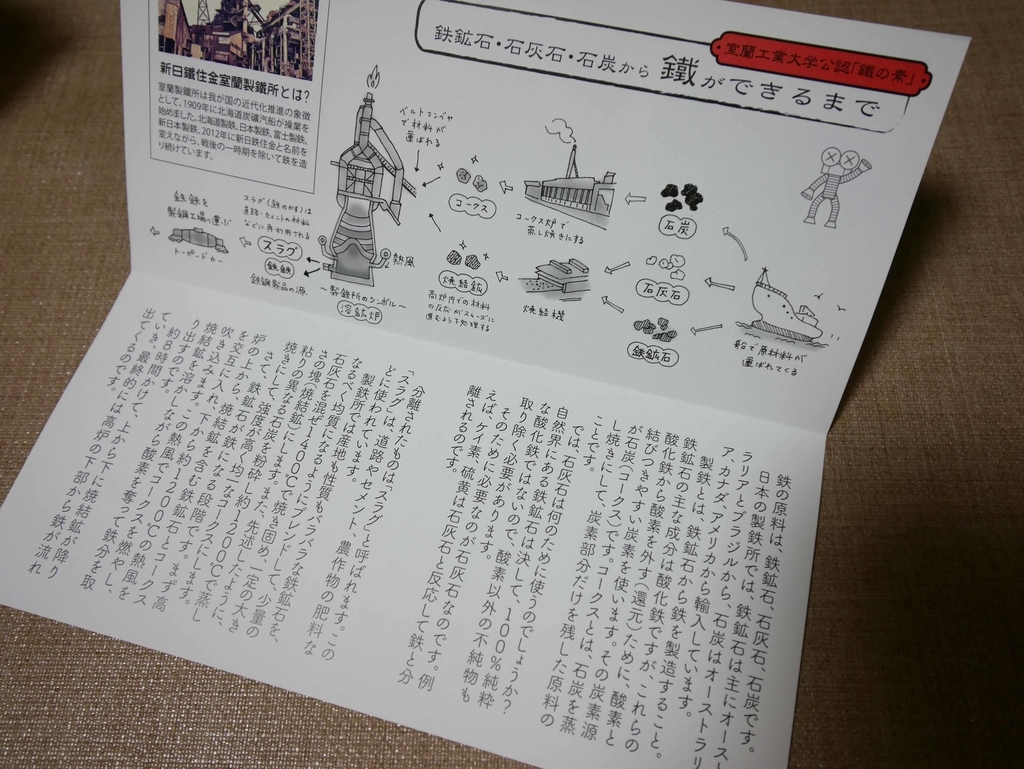 室蘭工業大学公認「鐵の素」
鉄鉱石・石灰石・石炭から 鐵ができるまで
新日鐵住金室蘭製鐵所とは?
室蘭製鐵所は我が国の近代化推進の象徴
として、1909年に北海道炭礦汽船が操業を
始めました。北海道製鉄、日本製鉄、富士製鉄、
新日本製鉄、2012年に新日鉄住金と名前を
変えながら、戦後の一時期を除いて鉄を造
り続けています。
船で原材料が
運ばれてくる
石炭
石灰石
鉄鉱石
コークス炉で
蒸し焼きにする
焼結機
コークス
焼結鉱
高炉内での材料
の反応がスムーズに
進むよう下処理する
ベルトコンベヤ
で材料が
運ばれる
熱風
〜製鉄所のシンボル〜
溶鉱炉
スラグ(鉄のかす)は
道路・セメントの材料
などに再利用される
スラグ
銑鉄
鉄鋼製品の源
銑鉄を
製鋼工場へ運ぶ
トーピードカー
鉄の原料は、鉄鉱石、石灰石、石炭です。
日本の製鉄所では、鉄鉱石は主にオースト
ラリアとブラジルから、石炭はオーストラリ
ア、カナダ、アメリカから輸入しています。
製鉄とは、鉄鉱石から鉄を製造すること。
鉄鉱石の主な成分は酸化鉄ですが、これらの
酸化鉄から酸素を外す(還元)ために、酸素と
結びつきやすい炭素を使います。その炭素源
が石炭(コークス)です。コークスとは、石炭を蒸
し焼きにして、炭素部分だけを残した原料の
ことです。
では、石灰石は何のために使うのでしょうか?
自然界にある鉄鉱石は決して、100%純粋
な酸化鉄ではないので、酸素以外の不純物も
取り除く必要があります。
そのために必要なのが石灰石なのです。例
えば、ケイ素、硫黄は石灰石と反応して鉄と分
離されるのです。
分離されたものは、スラグと呼ばれます。この
「スラグ」は、道路やセメント、農作物の肥料な
どに使われています。
製鉄所では産地も性質もバラバラな鉄鉱石を、
なるべく均質になるようにブレンドして、少量の
石灰石を混ぜ1400℃で焼き固め、一定の大き
さの塊(焼結鉱)にします。また、先述したように、
粘りの異なる石炭を粉砕し、約1200℃で蒸し
焼きにして、強度が高く均一なコークスにします。
さて、鉄鉱石が鉄になる段階です。まず高
炉の上から、焼結鉱を含む鉄鉱石とコークス
を交互に入れ、下から約1200℃の熱風を
吹き込みます。この熱風でコークスを燃やし、
焼結鉱を溶かしながら酸素を奪って鉄分を取
り出すのです。
約8時間かけて、上から下に焼結鉱が降り
ていき、最終的には高炉の下部から鉄が流れ
出てくるのです。